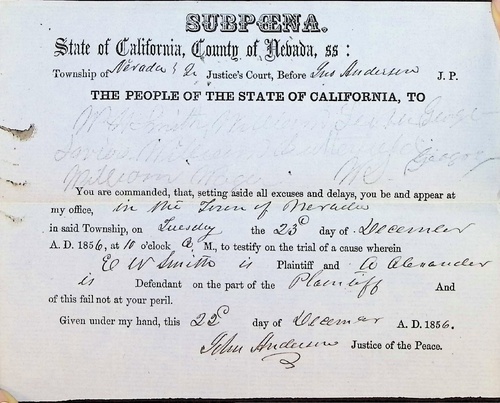 SUBPŒNA.
State of California, County of Nevada, ss:
Township of Nevada & Justice's Court, Before Jno Anderson J. P.
THE PEOPLE OF THE STATE OF CALIFORNIA, TO
W Smith George
William W S Gregory
You are commanded, that, setting aside all excuses and delays, you be and appear at
my office, in the Town of Nevada
in said Township, on Tuesday the 23d day of December
A. D. 1856, at 10 o'clock A. M., to testify on the trial of a cause wherein
E W Smith is Plaintiff and A Alexander
is Defendant on the part of the Plaintiff And
of this fail not at your peril.
Given under my hand, this 22d day of Decemar A. D. 1856.
John Anderson Justice of the Peace.